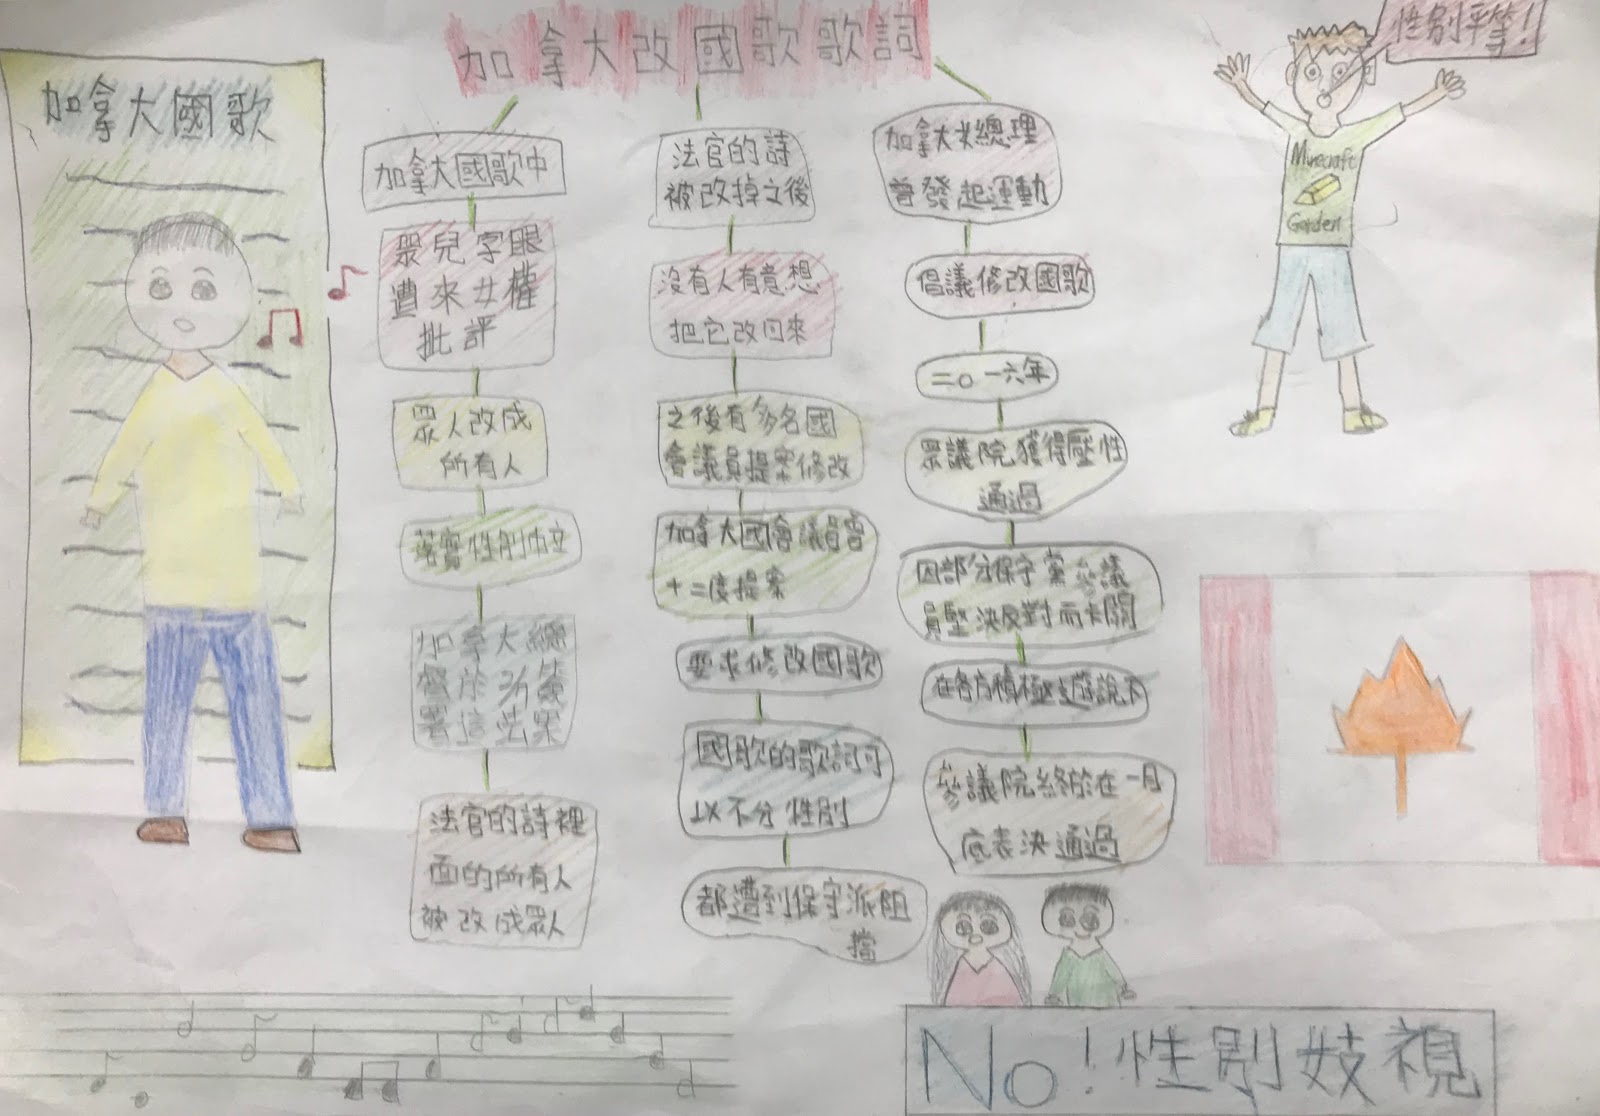 加拿大改國歌歌詞
性別平等!
加拿大國歌
加拿大國歌中
眾兒字眼
遭來女權
批評
眾人改成
所有人
落實性別中立
加拿大總
督於 簽
署這些案
法官的詩裡
面的所有人
被改成眾人
法官的詩
被改掉之後
沒有人有意想
把它改回來
之後有多名國
會議員提案修改
加拿大國會議員曾
十二度提案
要求修改國歌
國歌的歌詞可
以不分性別
都遭到保守派阻
擋
加拿大 總理
曾發起運動
倡議修改國歌
二〇一六年
眾議院獲得壓性
通過
因部分保守黨參議
員堅決反對而卡關
在各方積極遊說下
參議院終於在一月
底表決通過
Minecraft
Garden
No!性別妓視